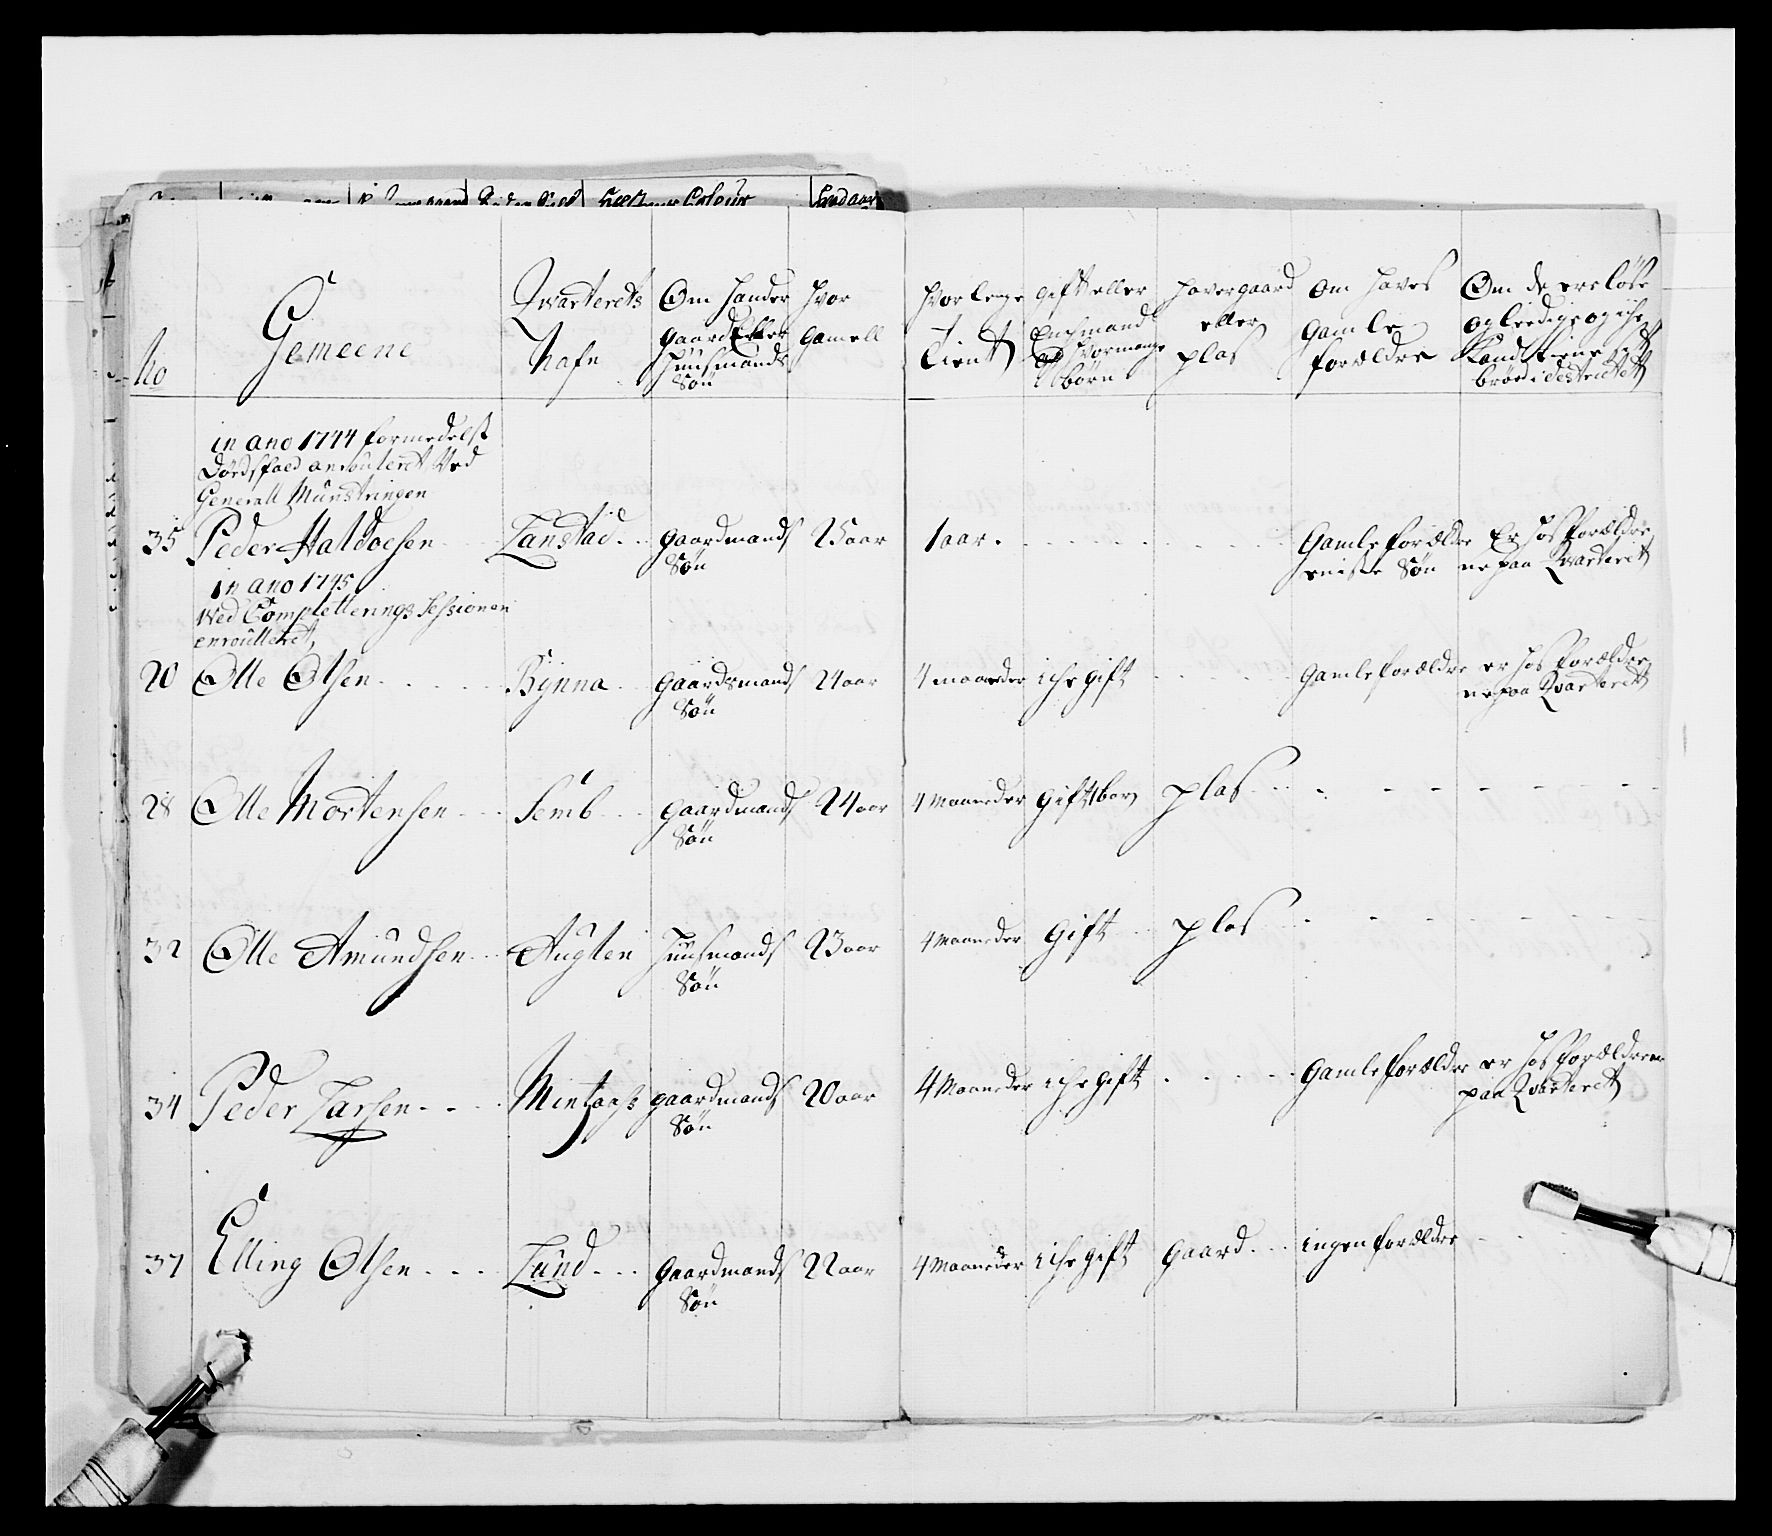 No
Gemeene
Qvarterets Nafn
Om hander gaard Eller huusmands Søn
hvor gamell
hvor lenge tient
gift eller Enchmand og hvor mange børn
haver gaard eller plas
om haves gamle forældre
Om de ere løse og leedige og iche
in ano 1744 formedelst
Dødsfald enroulleret Ved
Generall Munstringen
35 Peder Haldorsen Lanstad gaardmands Søn 25 aar 1 aar. Gamle forældre eniste Søn Er hos forældrene paa Kvarteret
in ano 1745
Ved Completterings Sessionen
enroulleret,
20 Olle Olsen Bÿnna gaardsmands Søn 24 aar 4 maaneder iche gift gamle forældre er hos forældrene paa Kvarteret
28 Olle Mortensen Semb gaardmands Søn 24 aar 4 Maaneder gift 1 barn plas
32 Olle Amundsen Augsten huusmands Søn 23 aar 4 Maaneder Gift plas
34 Peder Larsen gaardmands Søn 20 aar 4 Maaneder iche gift gamle forældre er hos forældrene paa Kvarteret
37 Elling Olsen Lund gaardmands Søn 22 aar 4 Maaneder iche gift gaard ingen forældre